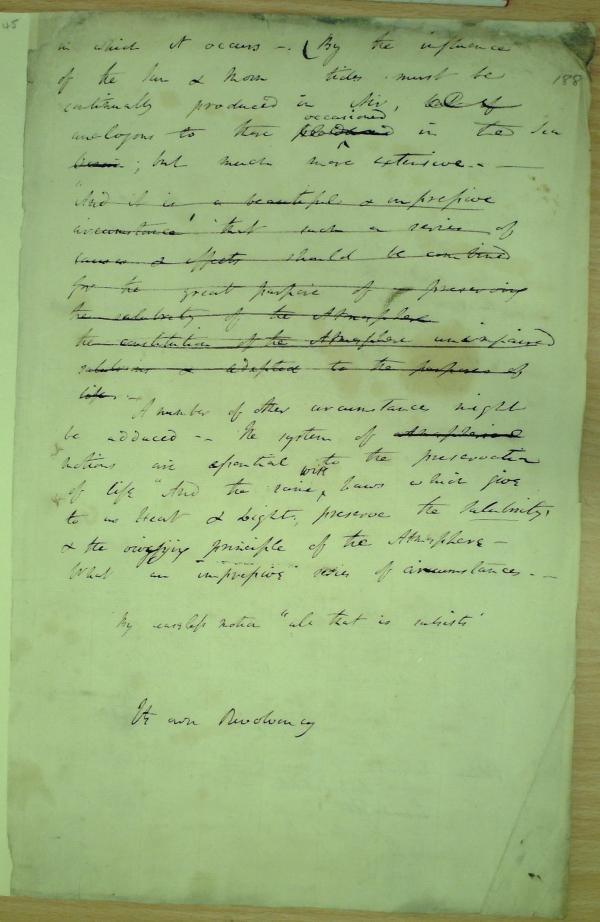 45
in which it occurs —. (By the influence
188
of the Sun & Moon tides must be
continually produced in Air,
occasioned
analogous to those in the Sea
; but much more extensive. —
"And it is a beautiful & impressive
circumstance" that such a series of
causes & effects should be combined
for the great purpose of preserving
the salubrity of the Atmosphere
the constitution of the Atmosphere unimpaired
salubrious & adapted to the purposes of
life. —
A number of other circumstance might
be adduced — The system of
actions are essential to the preservation
of life "And the same wise Laws which give
to us heat & Light, preserve the salubrity,
& the vivifying principle of the Atmosphere —
What an "impressive" series of circumstances. —
By ceaseless motion "all that is subsists"
Its own Revolvency